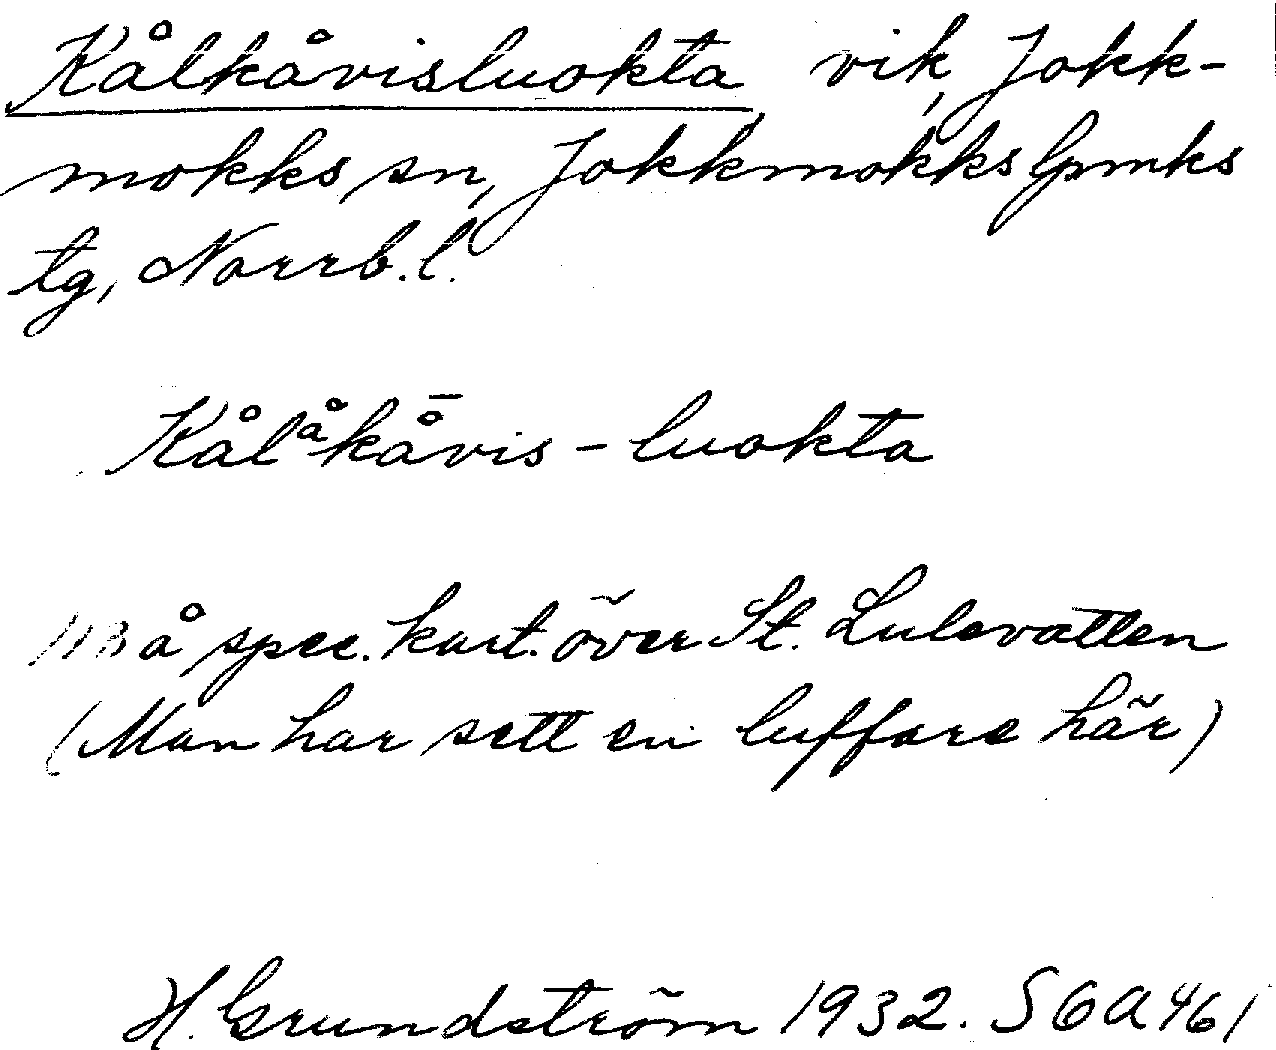 Kålkåvisluokta vik, Jokk-
mokks sn, Jokkmokks lpmks
tg, Norrb. l.
Kålåkå̄vis - luokta
113 å spec. kart. över St. Lulevatten
(Man har sett en luffare här)
H. Grundström 1932. SOA 461